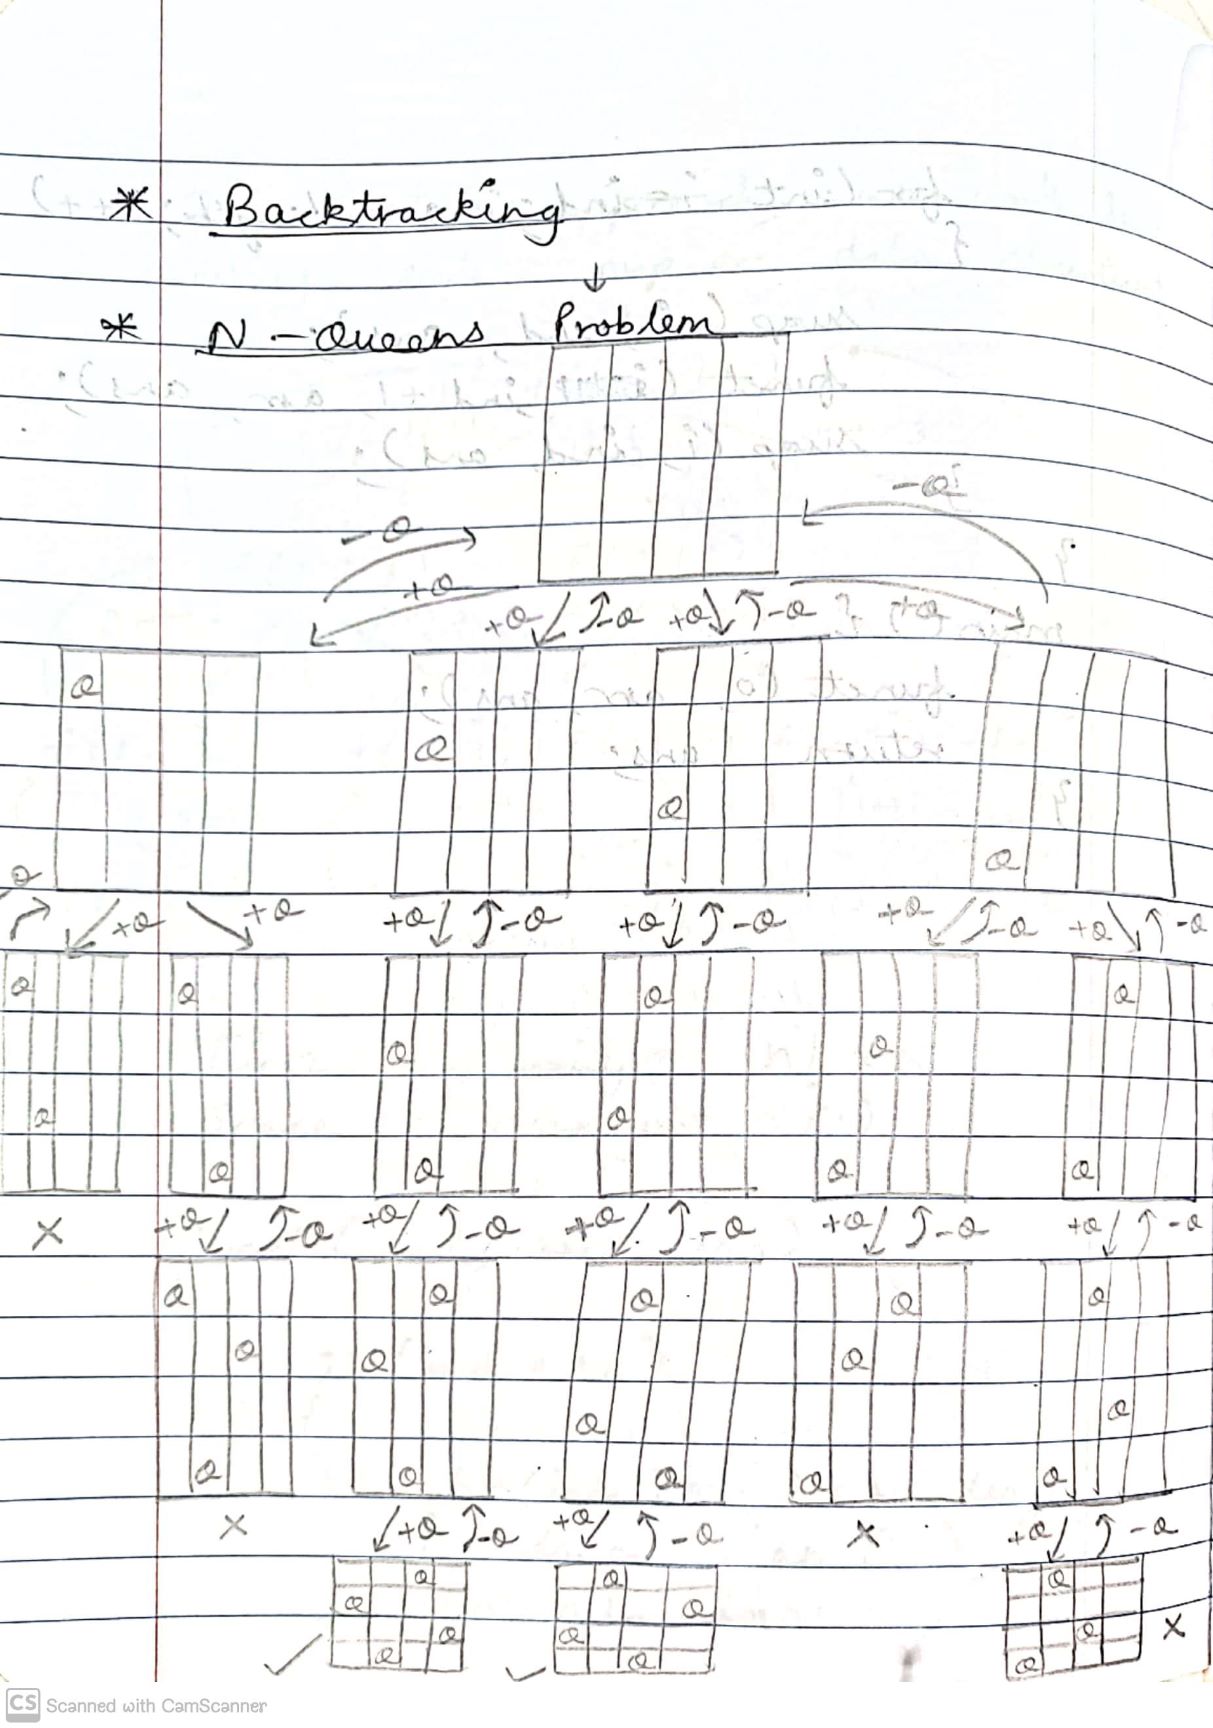 * Backtracking
↓
* N - Queens Problem
-Q
-Q
+Q
+Q -Q +Q -Q +Q
Q
Q
Q
Q
Q
+Q +Q +Q -Q +Q -Q +Q -Q +Q -Q
Q Q Q Q
Q Q
Q Q
Q Q Q Q
x +Q -Q +Q -Q +Q -Q +Q -Q +Q -Q
Q Q Q Q Q
Q Q Q
Q Q
Q Q Q Q Q
x +Q -Q +Q -Q x +Q -Q
Q Q Q
Q Q
Q Q Q x
✓ Q ✓ Q Q
CS Scanned with CamScanner